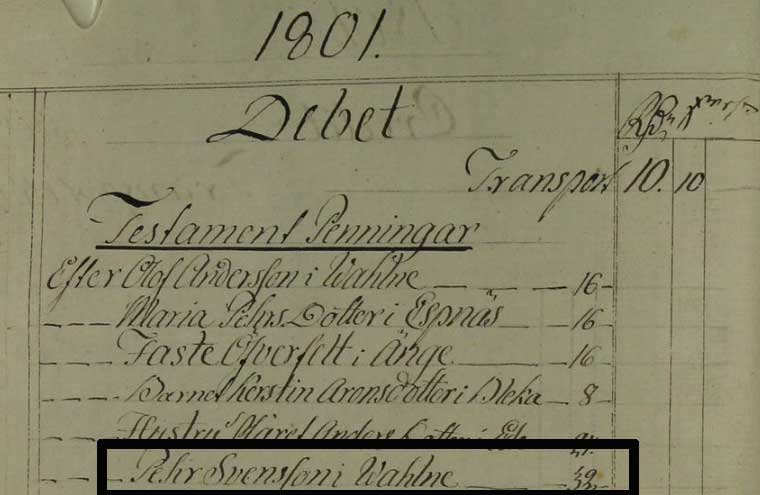 1801.
Debet
Transport 10. 10
Testament Penningar
Efter Olof Andersson i Wahlne — — — 16 —
— — — Maria Pehrs Dotter i Espnäs — 16 —
— — — Faste Öfverfelt i Änge — — 16 —
— — — Barnet Kerstin Arons dotter i Bleka — 8
— — — Hustru Märet Anders dotter i Ede
— — — Pehr Svensson i Wahlne